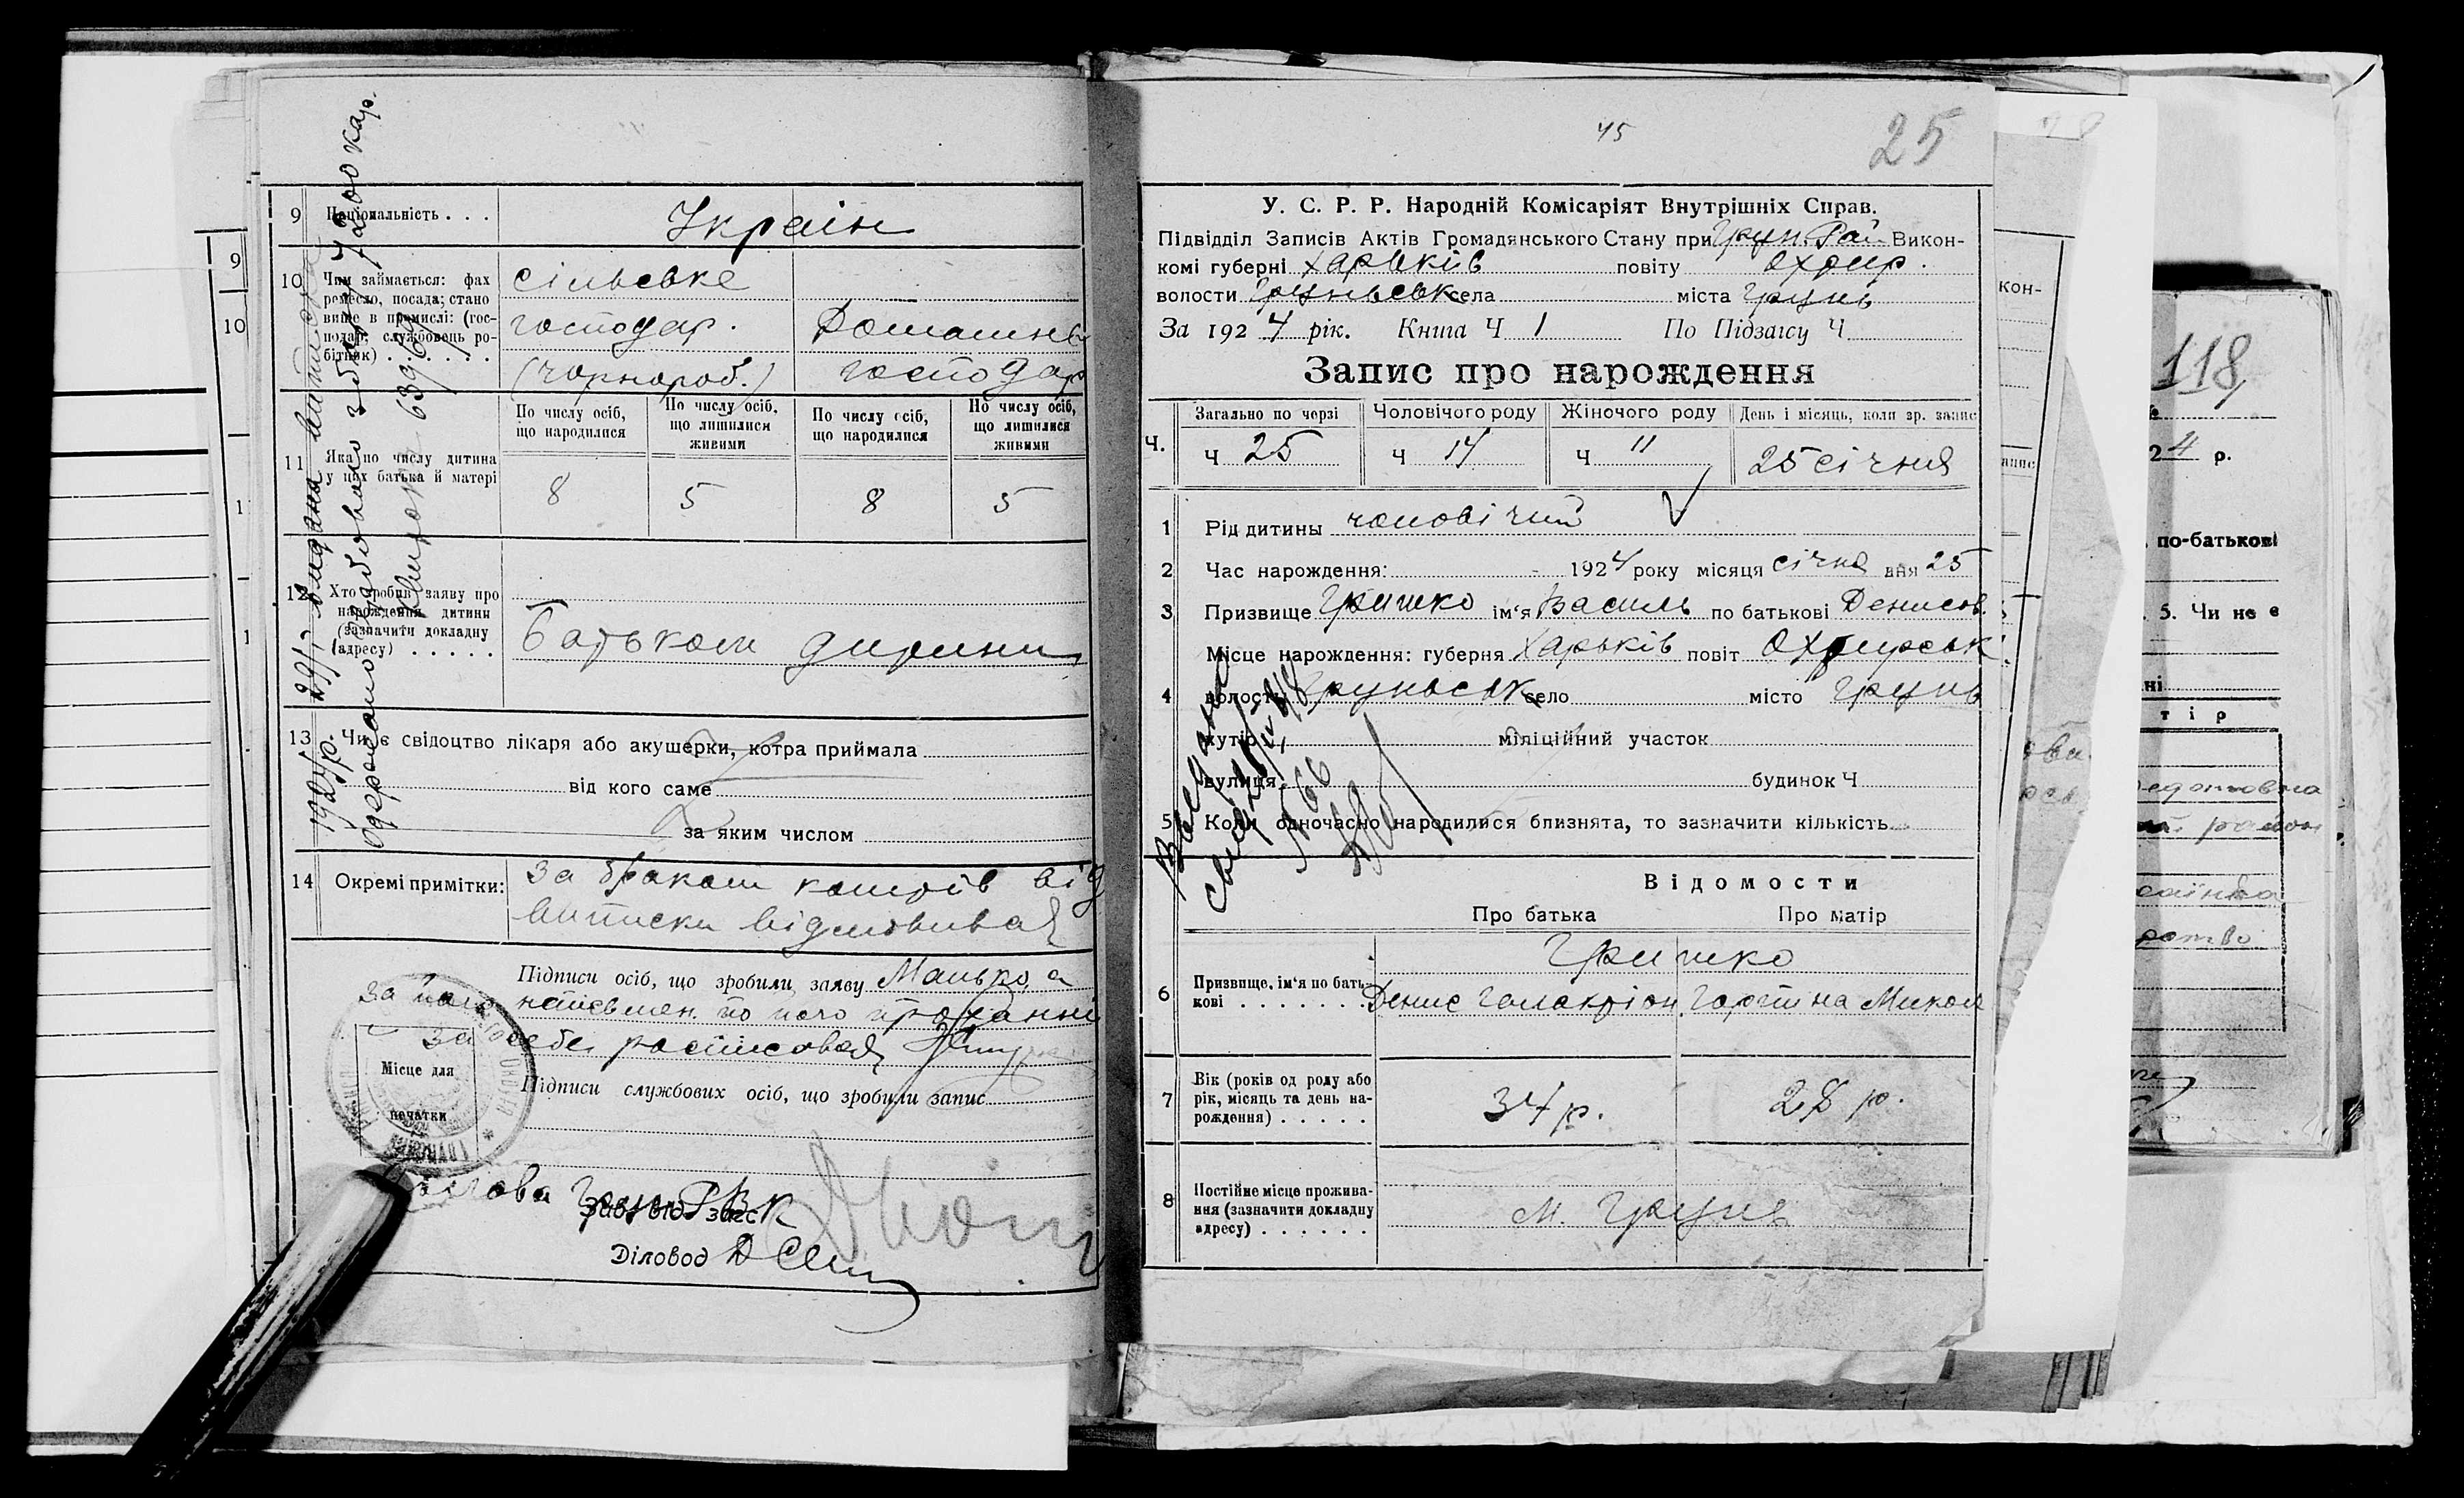 9 Національність . . .
Украін
10 Чим займається: фах
ремесло, посада; стано
вище в промислі: (гос-
подар, службовець ро-
бітник) . . . . . . .
сільське
господар.
(чорнороб.)
Домашнє
господар
11 Яка по числу дитина
у цих батька й матері
По числу осіб,
що народилися
По числу осіб,
що лишилися
живими
По числу осіб,
що народилися
По числу осіб,
що лишилися
живими
8
5
8
5
12 Хто зробив заяву про
народження дитини
(зазначити докладну
адресу) . . . . .
Батьком дитини
13 Чи є свідоцтво лікаря або акушерки, котра приймала
від кого саме
за яким числом
14 Окремі примітки:
За браком коштів від
виписки відмовився
Підписи осіб, що зробили заяву
за себе росписовався
Місце для
печатки
Підписи службових осіб, що зробили запис
Діловод
45
25
У. С. Р. Р. Народній Комісаріят Внутрішніх Справ.
Підвідділ Записів Актів Громадянського Стану при Грун. Рай Викон-
комі губерні Харьків повіту Охтир.
волости Груньськ села міста Грунь
За 1924 рік. Книга Ч 1 По Підзагсу Ч
Запис про нарождення
Ч.
Загально по черзі
Чоловічого роду
Жіночого роду
День і місяць, коли зр. запис
Ч 25
Ч 14
Ч 11
25 січня
1 Рід дитины чоловічий
2 Час нарождення: 1924 року місяця січня дня 25
3 Призвище Гришко ім‘я Василь по батькові Денисов.
4 Місце нарождення: губерня Харьків повіт Охтирськ.
волость Груньськ село місто Грунь
хутір міліційний участок
вулиця будинок Ч
5 Коли одночасно народилися близнята, то зазначити кількість
Відомости
Про батька
Про матір
6 Призвище, ім‘я по бать-
кові . . . . . . .
Гришко
Денис Галактіон. Горпина Микол
7 Вік (років од роду або
рік, місяць та день на-
рождення) . . . . .
34 р.
28 р.
8 Постійне місце прожива-
ння (зазначити докладну
адресу) . . . . . .
м. Грунь
Видано
свид
№ 66
118
24 р.
по-батькові
5. Чи не є